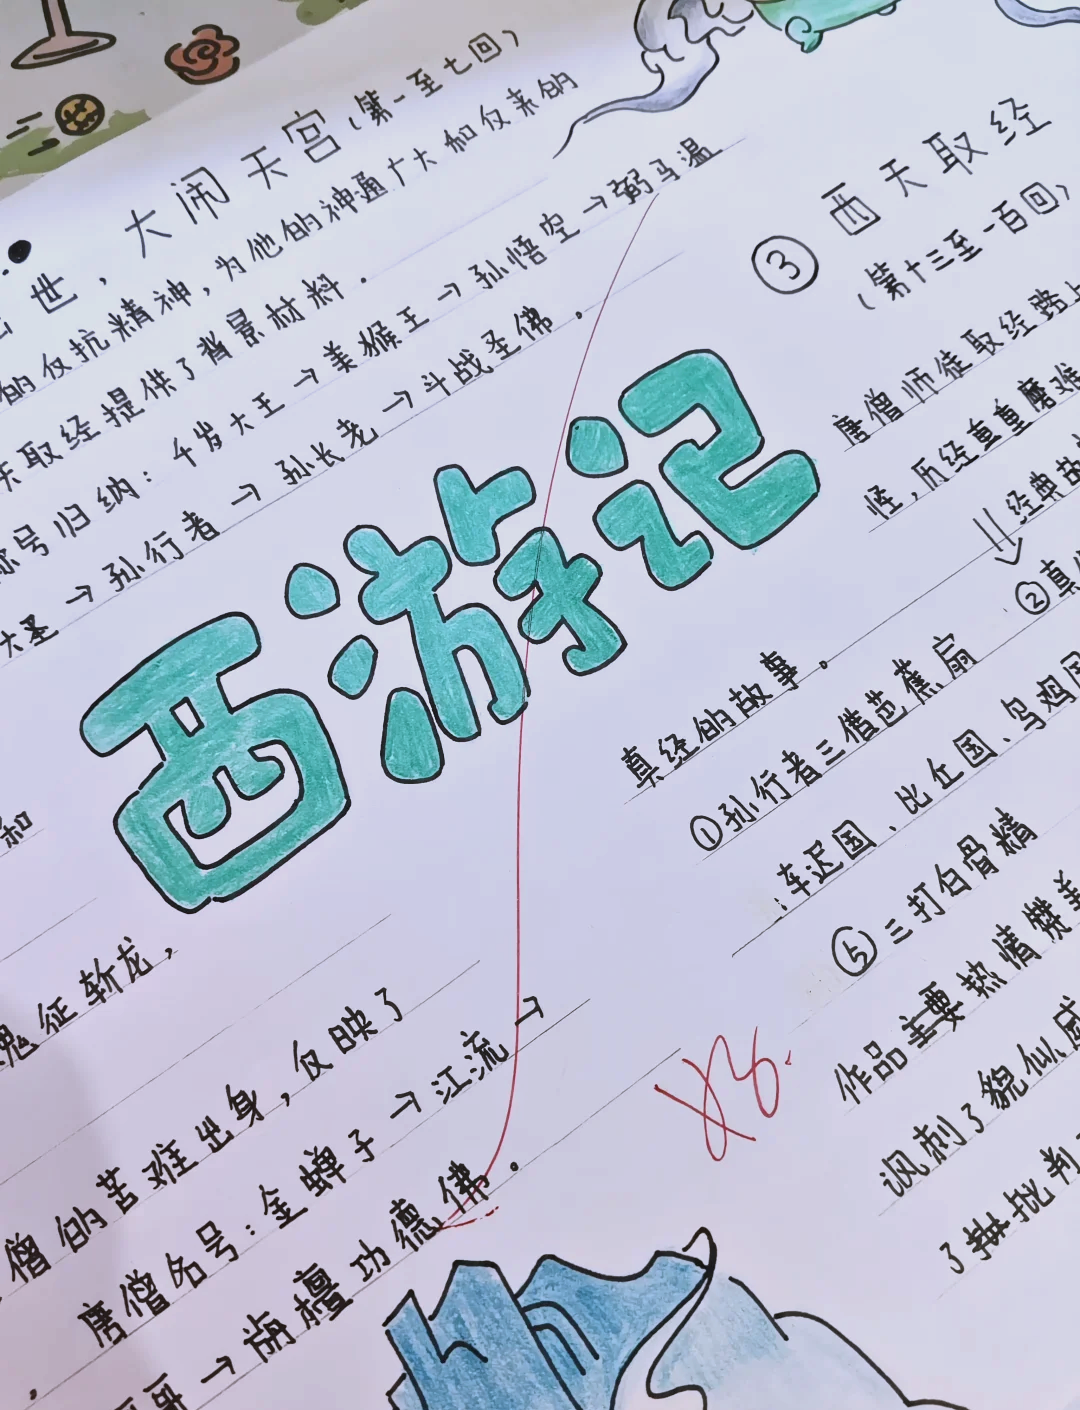 世，大闹天宫(第一至七回)
的仅抗精神，为他的神通广大和仅来的
取经提供了背景材料.
号归纳：千岁大王→美猴王→孙悟空→弼马温
大圣→孙行者→孙长老→斗战圣佛.
西游记
和
征斩龙，
僧的苦难出身，仅映了
唐僧名号：金蝉子→江流→
哥→旃檀功德佛.
③西天取经
(第十三至一百回)
唐僧师徒取经路上
怪，历经重重磨难
真经的故事.
⇓经典故
①孙行者三借芭蕉扇 ②真
车迟国、比丘国、乌鸡国
⑤三打白骨精
作品主要热情赞美
讽刺了貌似
了批判